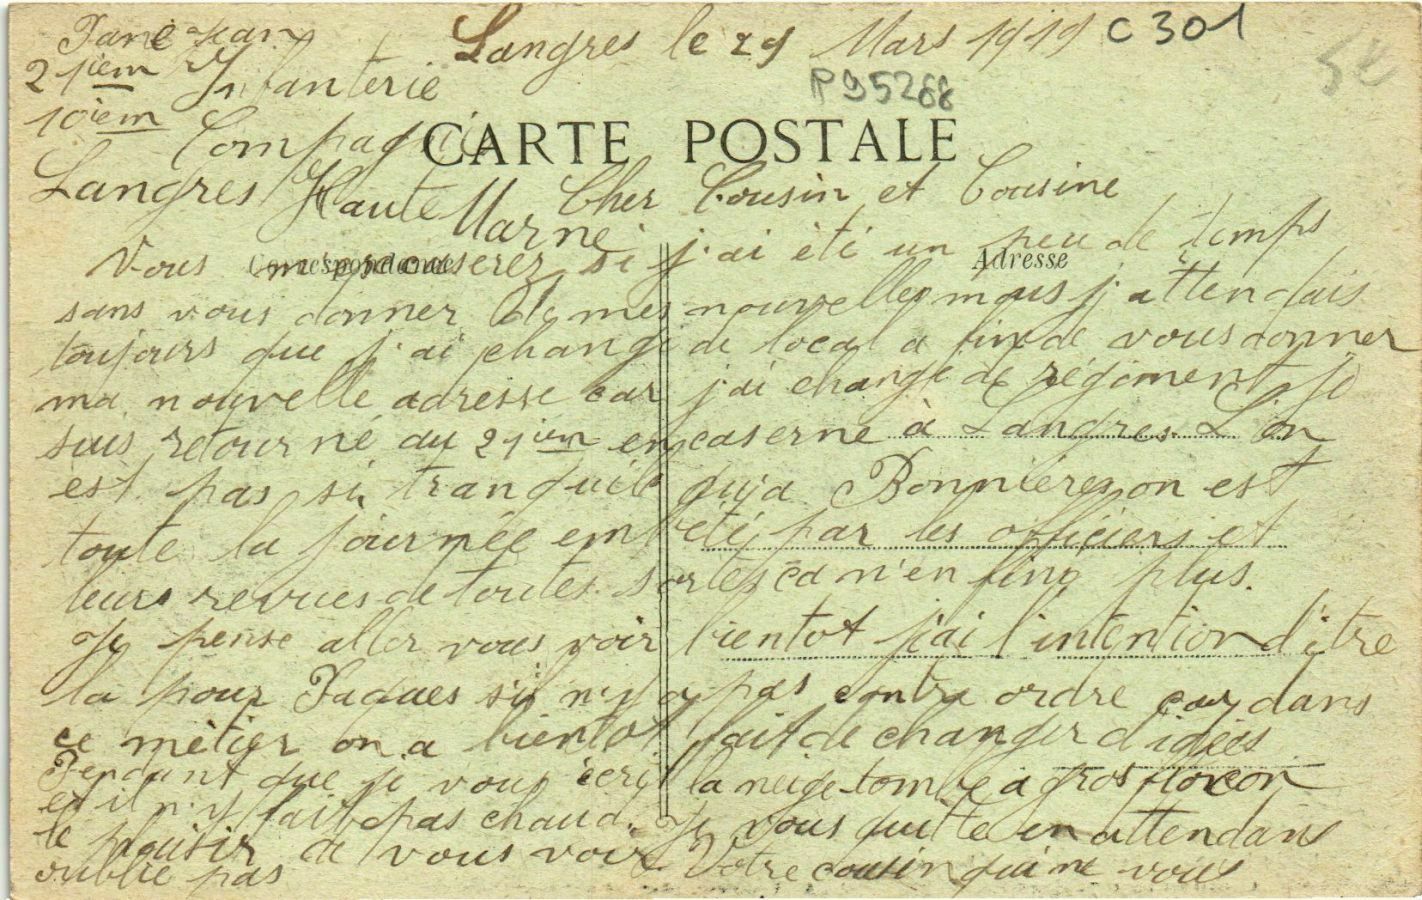 Langres le 29 Mars 1919 C 301
P 95268
5€
Jean
21iem Infanterie
10iem Compagnie
Langres Haute Marne
CARTE POSTALE
Correspondance
Adresse
Cher Cousin et Cousine
Vous m'excuserez si j'ai été un peu de temps
sans vous donner de mes nouvelles mais j'attendais
toujours que j'ai changé de local a fin de vous donner
ma nouvelle adresse car j'ai changé de régiment je
suis retourné au 21iem en caserne à Langres L'on
est pas si tranquile qu'a Bonnières on est
toute la journée embété par les officiers et
leurs revues de toutes sortes ça n'en fini plus.
Je pense aller vous voir bientot j'ai l'intention d'être
la pour Paques s'il n'y a pas contre ordre car dans
ce métier on a bientot fait de changer d'idées
Pendant que je vous écrit la neige tombe a gros flocon
et il n'y fait pas chaud. Je vous quitte en attendant
le plaisir de vous voir Votre cousin qui ne vous
oublie pas